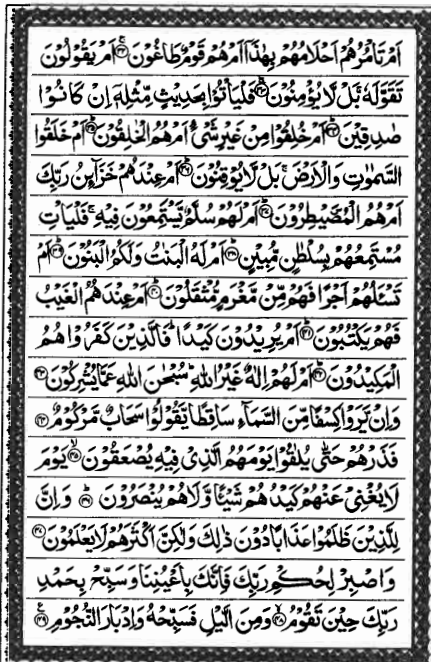 اَمْ تَاْمُرُهُمْ اَحْلَامُهُمْ بِهٰذَآ اَمْ هُمْ قَوْمٌ طَاغُوْنَ ۝۳۲ اَمْ يَقُوْلُوْنَ
تَقَوَّلَهٗ ۚ بَلْ لَّا يُؤْمِنُوْنَ ۝۳۳ فَلْيَاْتُوْا بِحَدِيْثٍ مِّثْلِهٖٓ اِنْ كَانُوْا
صٰدِقِيْنَ ۝۳۴ اَمْ خُلِقُوْا مِنْ غَيْرِ شَيْءٍ اَمْ هُمُ الْخٰلِقُوْنَ ۝۳۵ اَمْ خَلَقُوا
السَّمٰوٰتِ وَالْاَرْضَ ۚ بَلْ لَّا يُوْقِنُوْنَ ۝۳۶ اَمْ عِنْدَهُمْ خَزَآئِنُ رَبِّكَ
اَمْ هُمُ الْمُصَۜيْطِرُوْنَ ۝۳۷ اَمْ لَهُمْ سُلَّمٌ يَّسْتَمِعُوْنَ فِيْهِ ۚ فَلْيَاْتِ
مُسْتَمِعُهُمْ بِسُلْطٰنٍ مُّبِيْنٍ ۝۳۸ اَمْ لَهُ الْبَنٰتُ وَلَكُمُ الْبَنُوْنَ ۝۳۹ اَمْ
تَسْـَٔلُهُمْ اَجْرًا فَهُمْ مِّنْ مَّغْرَمٍ مُّثْقَلُوْنَ ۝۴۰ اَمْ عِنْدَهُمُ الْغَيْبُ
فَهُمْ يَكْتُبُوْنَ ۝۴۱ اَمْ يُرِيْدُوْنَ كَيْدًا ۭ فَالَّذِيْنَ كَفَرُوْا هُمُ
الْمَكِيْدُوْنَ ۝۴۲ اَمْ لَهُمْ اِلٰهٌ غَيْرُ اللّٰهِ ۭ سُبْحٰنَ اللّٰهِ عَمَّا يُشْرِكُوْنَ ۝۴۳
وَاِنْ يَّرَوْا كِسْفًا مِّنَ السَّمَآءِ سَاقِطًا يَّقُوْلُوْا سَحَابٌ مَّرْكُوْمٌ ۝۴۴
فَذَرْهُمْ حَتّٰى يُلٰقُوْا يَوْمَهُمُ الَّذِيْ فِيْهِ يُصْعَقُوْنَ ۝۴۵ يَوْمَ
لَا يُغْنِيْ عَنْهُمْ كَيْدُهُمْ شَيْـًٔا وَّلَا هُمْ يُنْصَرُوْنَ ۝۴۶ وَاِنَّ
لِلَّذِيْنَ ظَلَمُوْا عَذَابًا دُوْنَ ذٰلِكَ وَلٰكِنَّ اَكْثَرَهُمْ لَا يَعْلَمُوْنَ ۝۴۷
وَاصْبِرْ لِحُكْمِ رَبِّكَ فَاِنَّكَ بِاَعْيُنِنَا وَسَبِّحْ بِحَمْدِ
رَبِّكَ حِيْنَ تَقُوْمُ ۝۴۸ وَمِنَ الَّيْلِ فَسَبِّحْهُ وَاِدْبَارَ النُّجُوْمِ ۝۴۹ ع